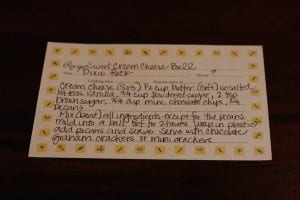 Sweet Cream Cheese Ball
Dixie Rock
Cream Cheese (8oz) 1/2 cup butter (soft) unsalted
vanilla, 3/4 cup powdered sugar, 2 tbsp
brown sugar, 3/4 cup mini chocolate chips, 3/4
pecans
Mix (beat) all ingredients except for the pecans
mold into a ball. Ref for 2 hours (wrap in plastic
add pecans and serve. Serve with chocolate
graham crackers or mini crackers.